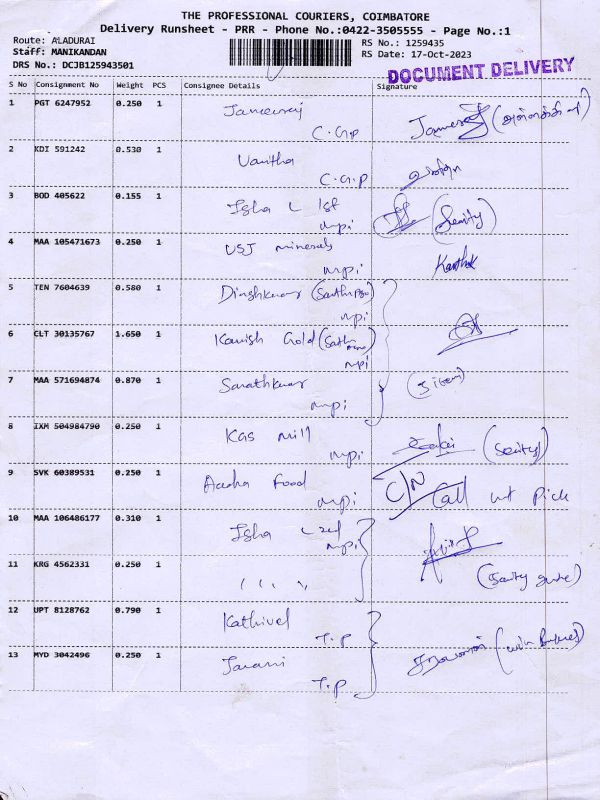 THE PROFESSIONAL COURIERS, COIMBATORE
Delivery Runsheet - PRR - Phone No.:0422-3505555 - Page No.:1
Route: ALADURAI
Staff: MANIKANDAN
DRS No.: DCJB125943501
RS No.: 1259435
RS Date: 17-Oct-2023
DOCUMENT DELIVERY
S No Consignment No Weight PCS Consignee Details Signature
1 PGT 6247952 0.250 1
C.G.P
2 KDI 591242 0.530 1 Vanitha
C.G.P
3 BOD 405622 0.155 1 Isha
mpi
4 MAA 105471673 0.250 1 USJ minerals
mpi
5 TEN 7604639 0.580 1
mpi
6 CLT 30135767 1.650 1 Gold
mpi
7 MAA 571694874 0.870 1 Sarathkumar
mpi
8 IXM 504984790 0.250 1 Kas mill
mpi
9 SVK 60389531 0.250 1 Food C/N Call not Pick
mpi
10 MAA 106486177 0.310 1 Isha
mpi
11 KRG 4562331 0.250 1
12 UPT 8128762 0.790 1 Kathivel
T.P
13 MYD 3042496 0.250 1
T.P